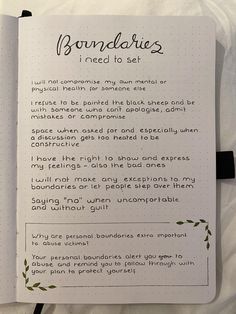 Boundaries
i need to set
I will not compromise my own mental or
physical health for someone else
I refuse to be painted the black sheep and be
with someone who can't apologise, admit
mistakes or compromise
Space when asked for and especially when
a discussion gets too heated to be
constructive
I have the right to show and express
my feelings - also the bad ones
I will not make any exceptions to my
boundaries or let people step over them
Saying "no" when uncomfortable
and without guilt
Why are personal boundaries extra important
to abuse victims?
Your personal boundaries alert you to
abuse and remind you to follow through with
your plan to protect yourself